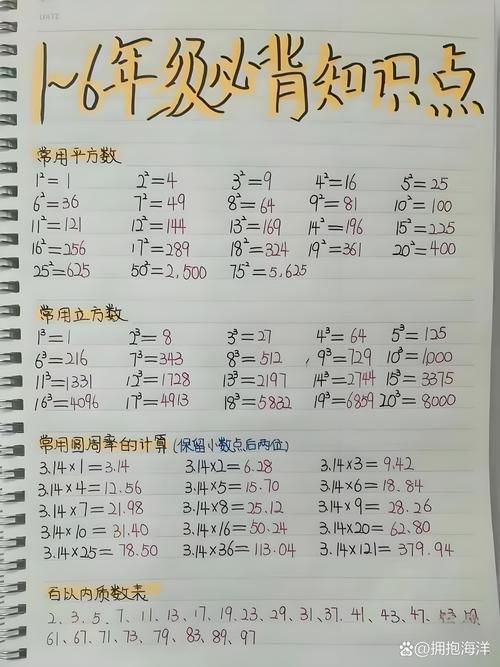 1~6年级必背知识点
常用平方数
1²=1 2²=4 3²=9 4²=16 5²=25
6²=36 7²=49 8²=64 9²=81 10²=100
11²=121 12²=144 13²=169 14²=196 15²=225
16²=256 17²=289 18²=324 19²=361 20²=400
25²=625 50²=2,500 75²=5,625
常用立方数
1³=1 2³=8 3³=27 4³=64 5³=125
6³=216 7³=343 8³=512 9³=729 10³=1000
11³=1331 12³=1728 13³=2197 14³=2744 15³=3375
16³=4096 17³=4913 18³=5832 19³=6859 20³=8000
常用圆周率的计算(保留小数点后两位)
3.14×1=3.14 3.14×2=6.28 3.14×3=9.42
3.14×4=12.56 3.14×5=15.70 3.14×6=18.84
3.14×7=21.98 3.14×8=25.12 3.14×9=28.26
3.14×10=31.40 3.14×16=50.24 3.14×20=62.80
3.14×25=78.50 3.14×36=113.04 3.14×121=379.94
百以内质数表
2、3、5、7、11、13、17、19、23、29、31、37、41、43、47、
61、67、71、73、79、83、89、97
@拥抱海洋